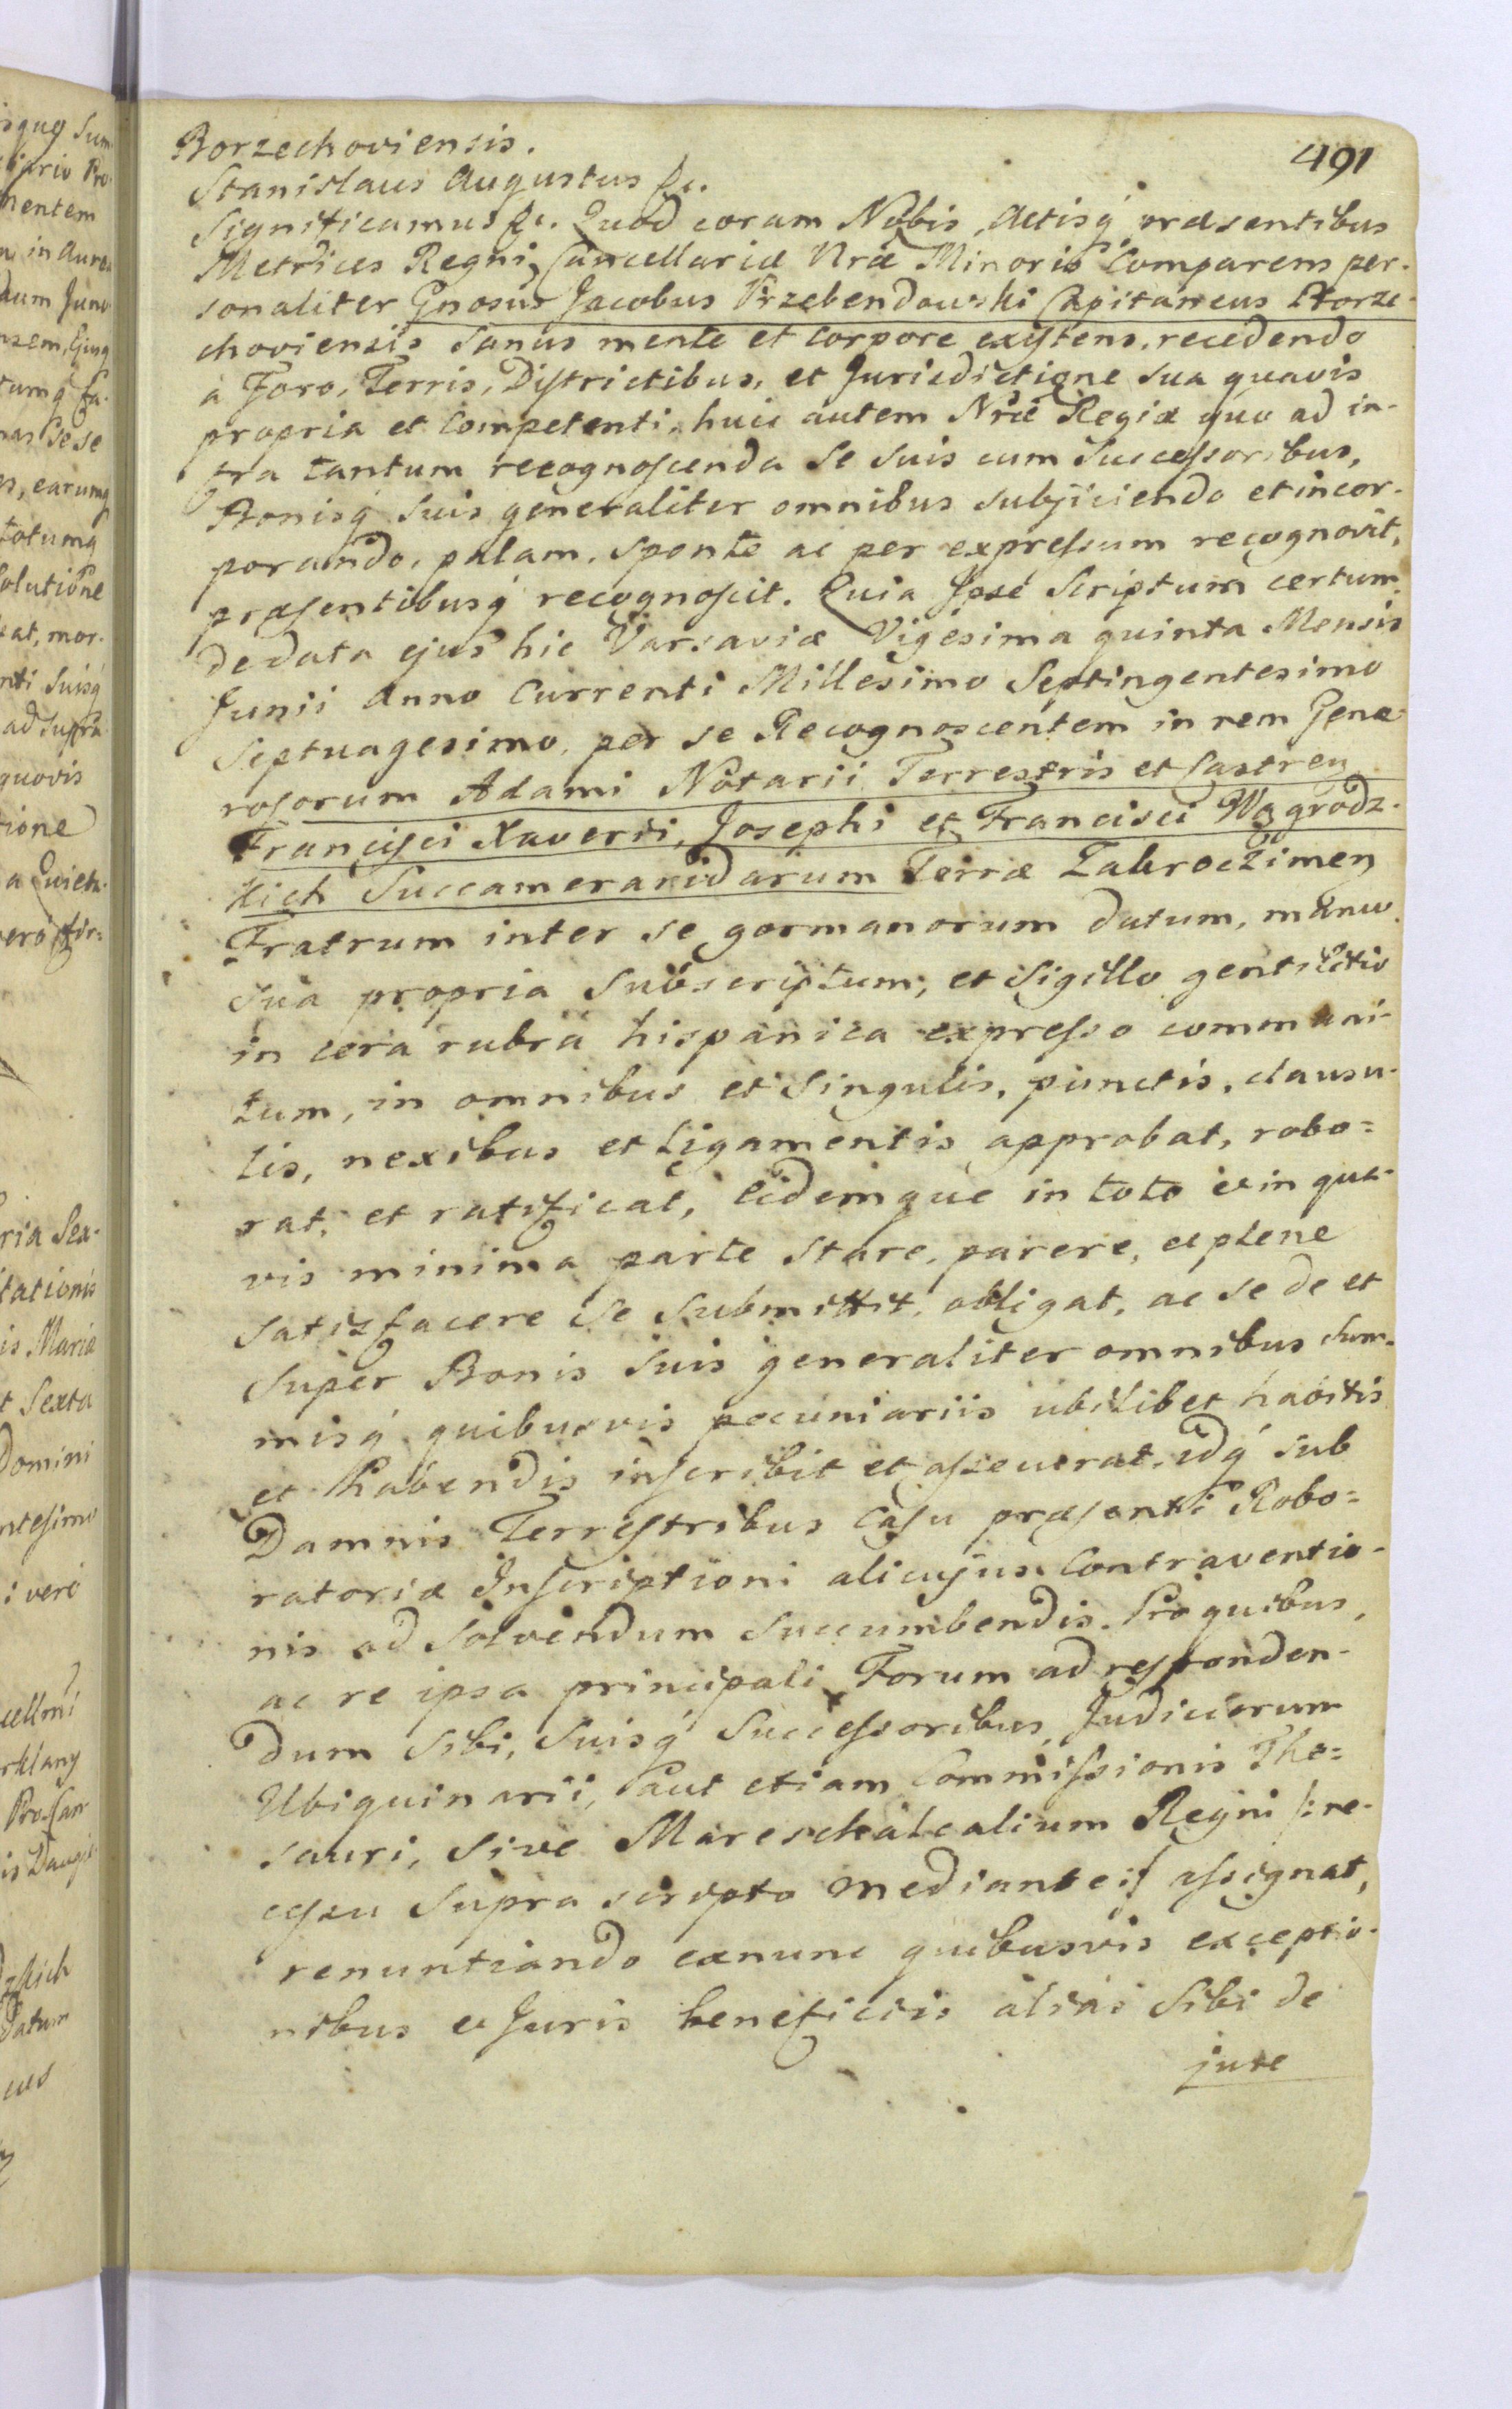 491
Borzechoviensis.
Stanislaus Augustus &c.
Significamus &c. Quod coram Nobis, Actisq́ præsentibus
Metrices Regni Cancellariæ Nræ Minoris Comparens per-
sonaliter Gnosus Jacobus Przebendowski Capitaneus Borze-
choviensis Sanus mente et Corpore existens, recedendo
a Foro, Terris, Districtibus, et Jurisdictione sua quavis
propria et Competenti, huic autem Nræ Regiæ quo ad in-
fra tantum recognoscenda Se Suis cum Successoribus,
Bonisq́ Suis generaliter omnibus subjiciendo et incor-
porando, palam, sponte ac per expressum recognovit,
præsentibusq́ recognoscit. Quia Ipse Scriptum certum
de data ejus hic Varsaviæ Vigesima quinta Mensis
Junii Anno Currenti Millesimo Septingentesimo
Septuagesimo, per se Recognoscentem in rem Gene-
rosorum Adami Notarii Terrestris et Castren
Francisci Xaverii, Josephi et Francisci Wągrodz-
kich Succameranidarum Terræ Zakroczimen
Fratrum inter se germanorum datum, manu
sua propria Subscriptum, et Sigillo gentilitio
in cera rubra hispanica expresso communi-
tum, in omnibus et Singulis, punctis, clausu-
lis, nexibus et Ligamentis approbat, robo=
rat, et ratificat, Eidemque in toto et in qua-
vis minima parte Stare, parere, et plene
satisfacere Se Submittit, obligat, ac Se de et
Super Bonis Suis generaliter omnibus Sum-
misq́ quibusvis pecuniariis ubilibet habitis
et habendis inscribit et asseverat, idq́ sub
Damnis Terrestribus Casu præsenti Robo=
ratoriæ Inscriptioni alicujus Contraventio-
nis ad Solvendum Succumbendis. Pro quibus,
ac re ipsa principali Forum ad responden-
dum Sibi, Suisq́ Successoribus, Judiciorum
Ubiquinarii, aut etiam Commissionis The=
sauri, Sive Mareschalcalium Regni /: re-
cessu Supra scripto mediante :/ assignat,
renuntiando exnunc quibusvis exceptio-
nibus et Juris beneficiis alias Sibi de
jure